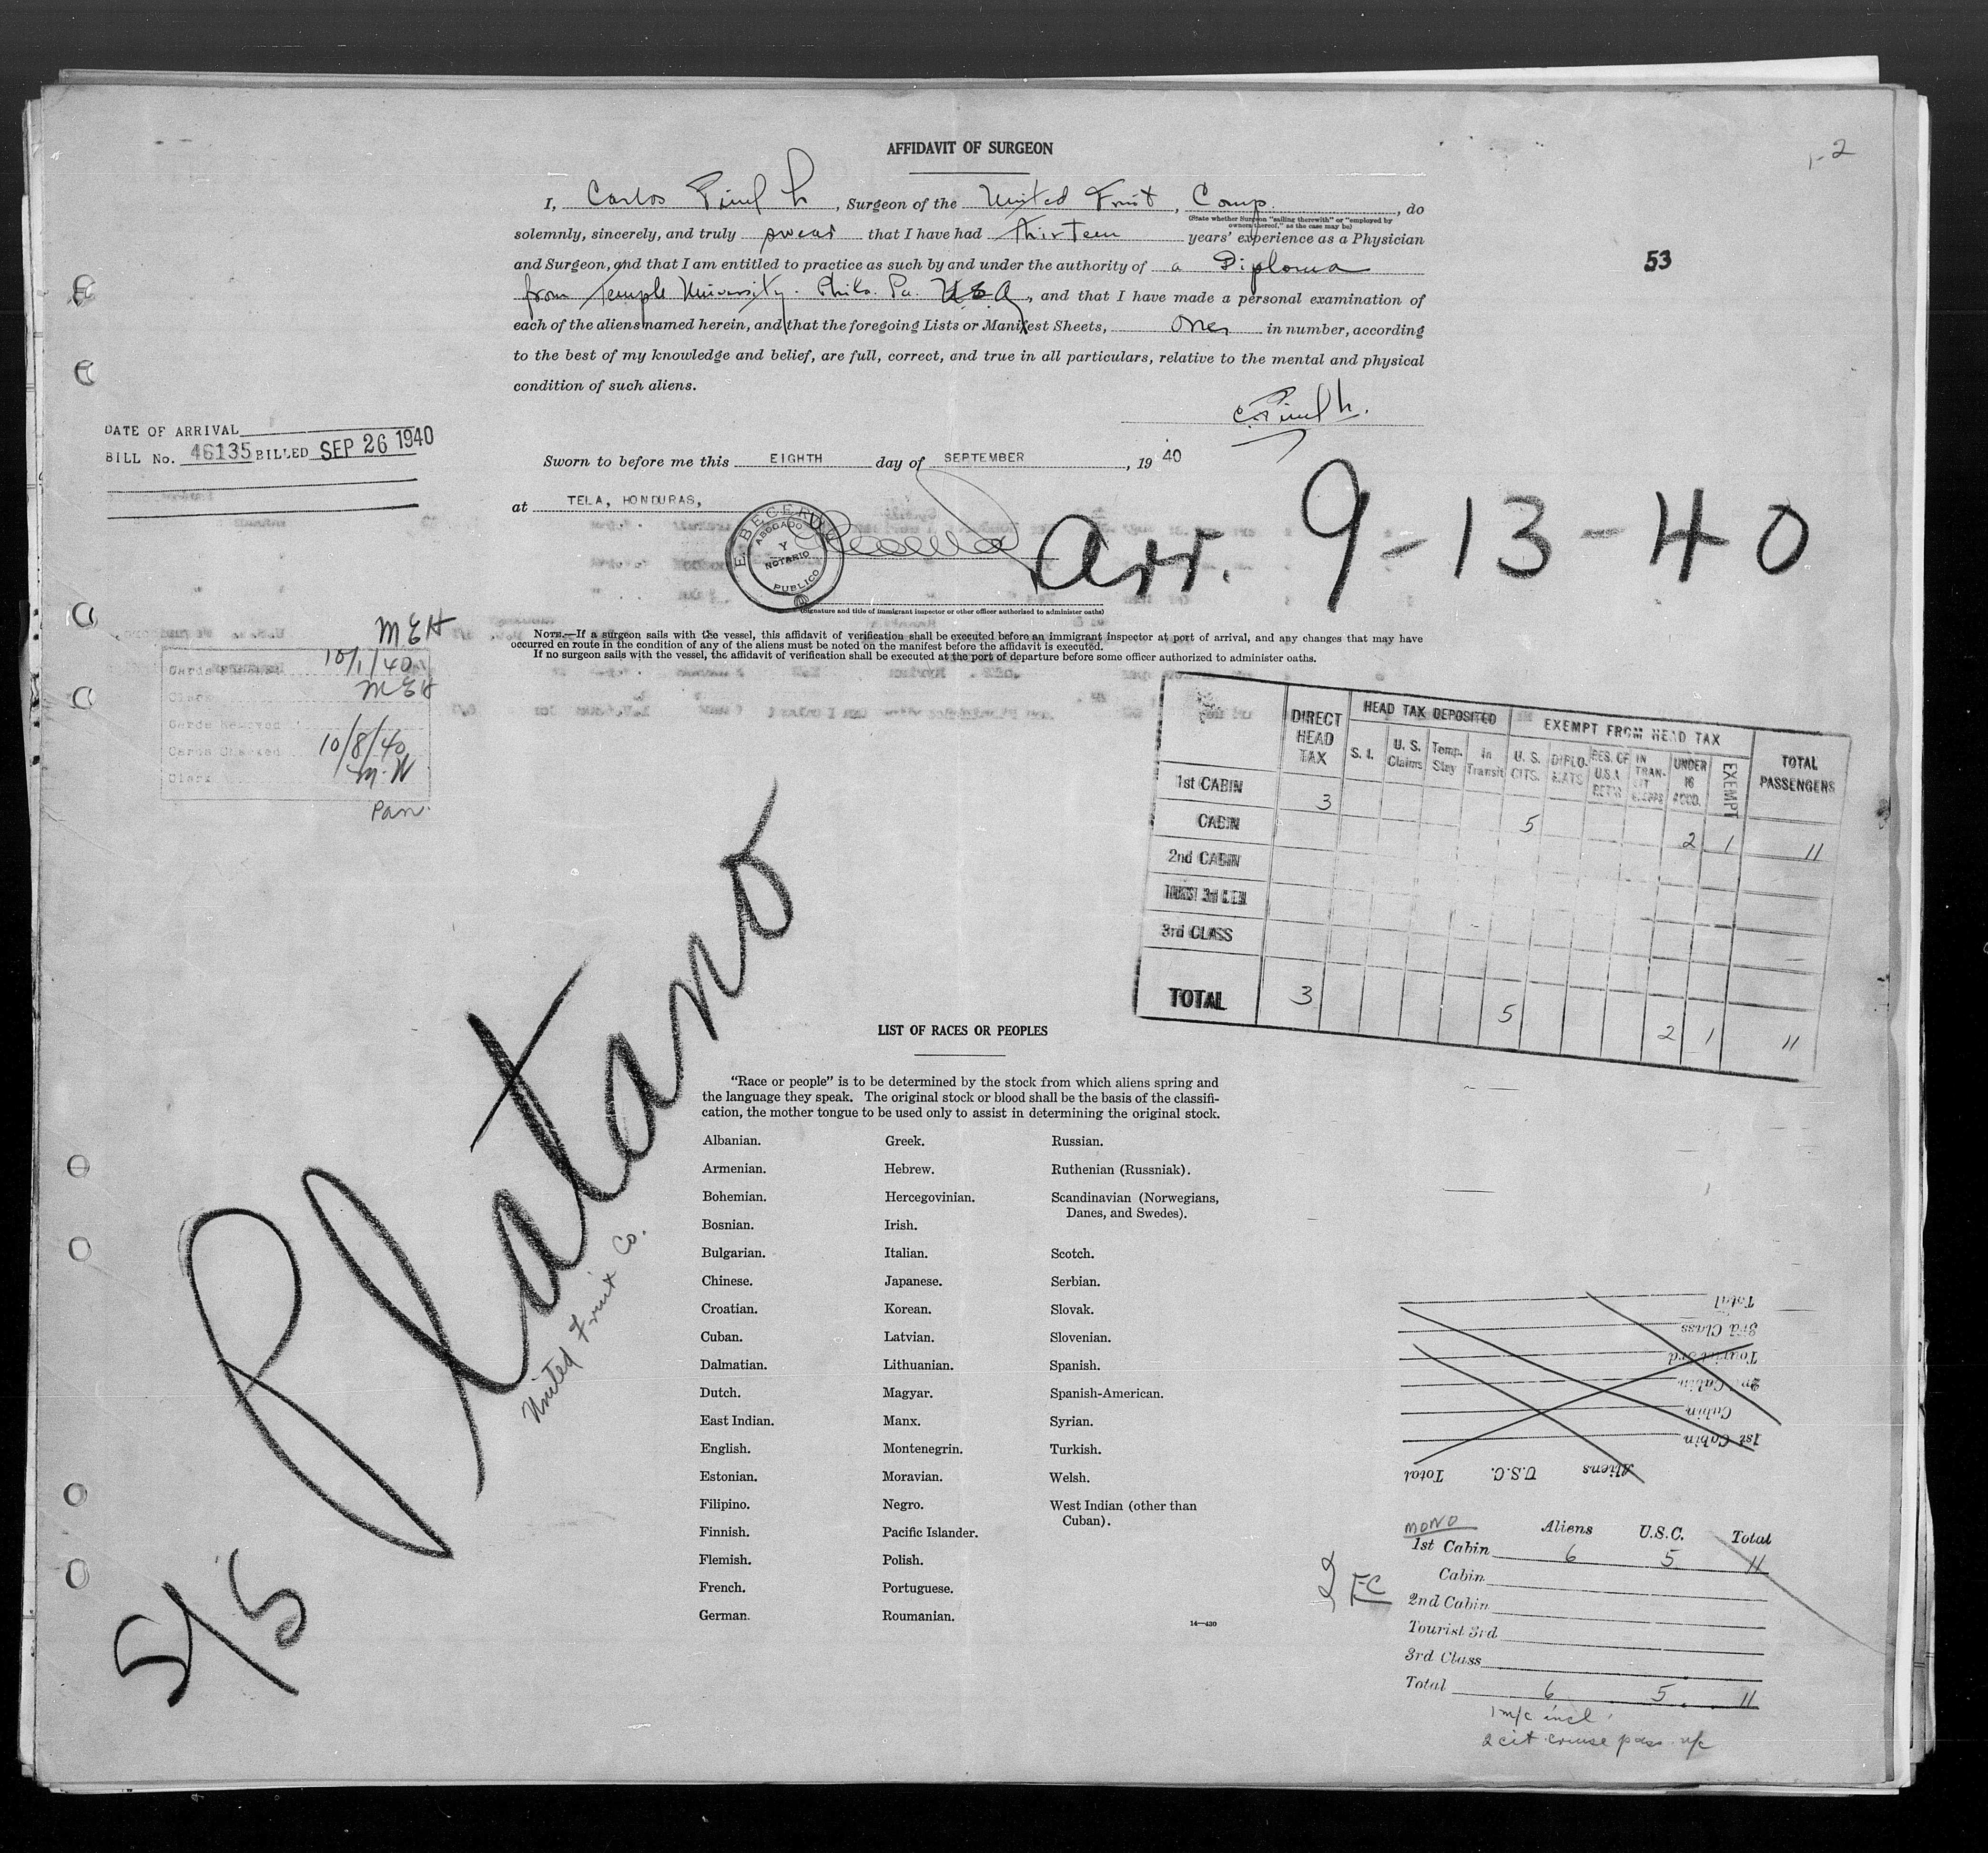 1-2
AFFIDAVIT OF SURGEON
I, Carlos Pinel h, Surgeon of the United Fruit, Comp., do
(State whether Surgeon "sailing therewith" or "employed by owners thereof," as the case may be)
solemnly, sincerely, and truly swear that I have had thirteen years' experience as a Physician
and Surgeon, and that I am entitled to practice as such by and under the authority of a Diploma
from Temple University. Phila. Pa. U.S.A, and that I have made a personal examination of
each of the aliens named herein, and that the foregoing Lists or Manifest Sheets, one, in number, according
to the best of my knowledge and belief, are full, correct, and true in all particulars, relative to the mental and physical
condition of such aliens.
C. Pinel h.
53
DATE OF ARRIVAL
BILL No. 46135 BILLED SEP 26 1940
Sworn to before me this EIGHTH day of SEPTEMBER, 1940
at TELA, HONDURAS,
E. BECERR
ABOGADO
Y
NOTARIO
PUBLICO
Arr. 9-13-40
(Signature and title of immigrant inspector or other officer authorized to administer oaths)
NOTE.—If a surgeon sails with the vessel, this affidavit of verification shall be executed before an immigrant inspector at port of arrival, and any changes that may have
occurred en route in the condition of any of the aliens must be noted on the manifest before the affidavit is executed.
If no surgeon sails with the vessel, the affidavit of verification shall be executed at the port of departure before some officer authorized to administer oaths.
MEH
Cards 10/1/40
Clerk MEH
Cards Removed
Cards Checked 10/8/40
Clerk M.W
Pan.
DIRECT HEAD TAX
HEAD TAX DEPOSITED
EXEMPT FROM HEAD TAX
TOTAL PASSENGERS
S. I.
U. S. Claims
Temp. Stay
In Transit
U. S. CITS.
DIPLOMATS
RES. OF U.S.A. RET'G
IN TRANSIT
UNDER 16 ACCD.
EXEMPT
1st CABIN 3 5 2 1 11
CABIN
2nd CABIN
TOURIST 3rd
3rd CLASS
TOTAL 3 5 2 1 11
Platano
United Fruit Co.
5/5
LIST OF RACES OR PEOPLES
"Race or people" is to be determined by the stock from which aliens spring and
the language they speak. The original stock or blood shall be the basis of the classifi-
cation, the mother tongue to be used only to assist in determining the original stock.
Albanian.
Armenian.
Bohemian.
Bosnian.
Bulgarian.
Chinese.
Croatian.
Cuban.
Dalmatian.
Dutch.
East Indian.
English.
Estonian.
Filipino.
Finnish.
Flemish.
French.
German.
Greek.
Hebrew.
Hercegovinian.
Irish.
Italian.
Japanese.
Korean.
Latvian.
Lithuanian.
Magyar.
Manx.
Montenegrin.
Moravian.
Negro.
Pacific Islander.
Polish.
Portuguese.
Roumanian.
Russian.
Ruthenian (Russniak).
Scandinavian (Norwegians,
Danes, and Swedes).
Scotch.
Serbian.
Slovak.
Slovenian.
Spanish.
Spanish-American.
Syrian.
Turkish.
Welsh.
West Indian (other than
Cuban).
14—430
Total
3rd Class
Tourist 3rd
2nd Cabin
Cabin
1st Cabin
Aliens U.S.C. Total
MONO
Aliens U.S.C. Total
1st Cabin 6 5 11
Cabin
2nd Cabin
Tourist 3rd
3rd Class
Total 6 5 11
1 m/c incl
2 cit cruise pass. n/c